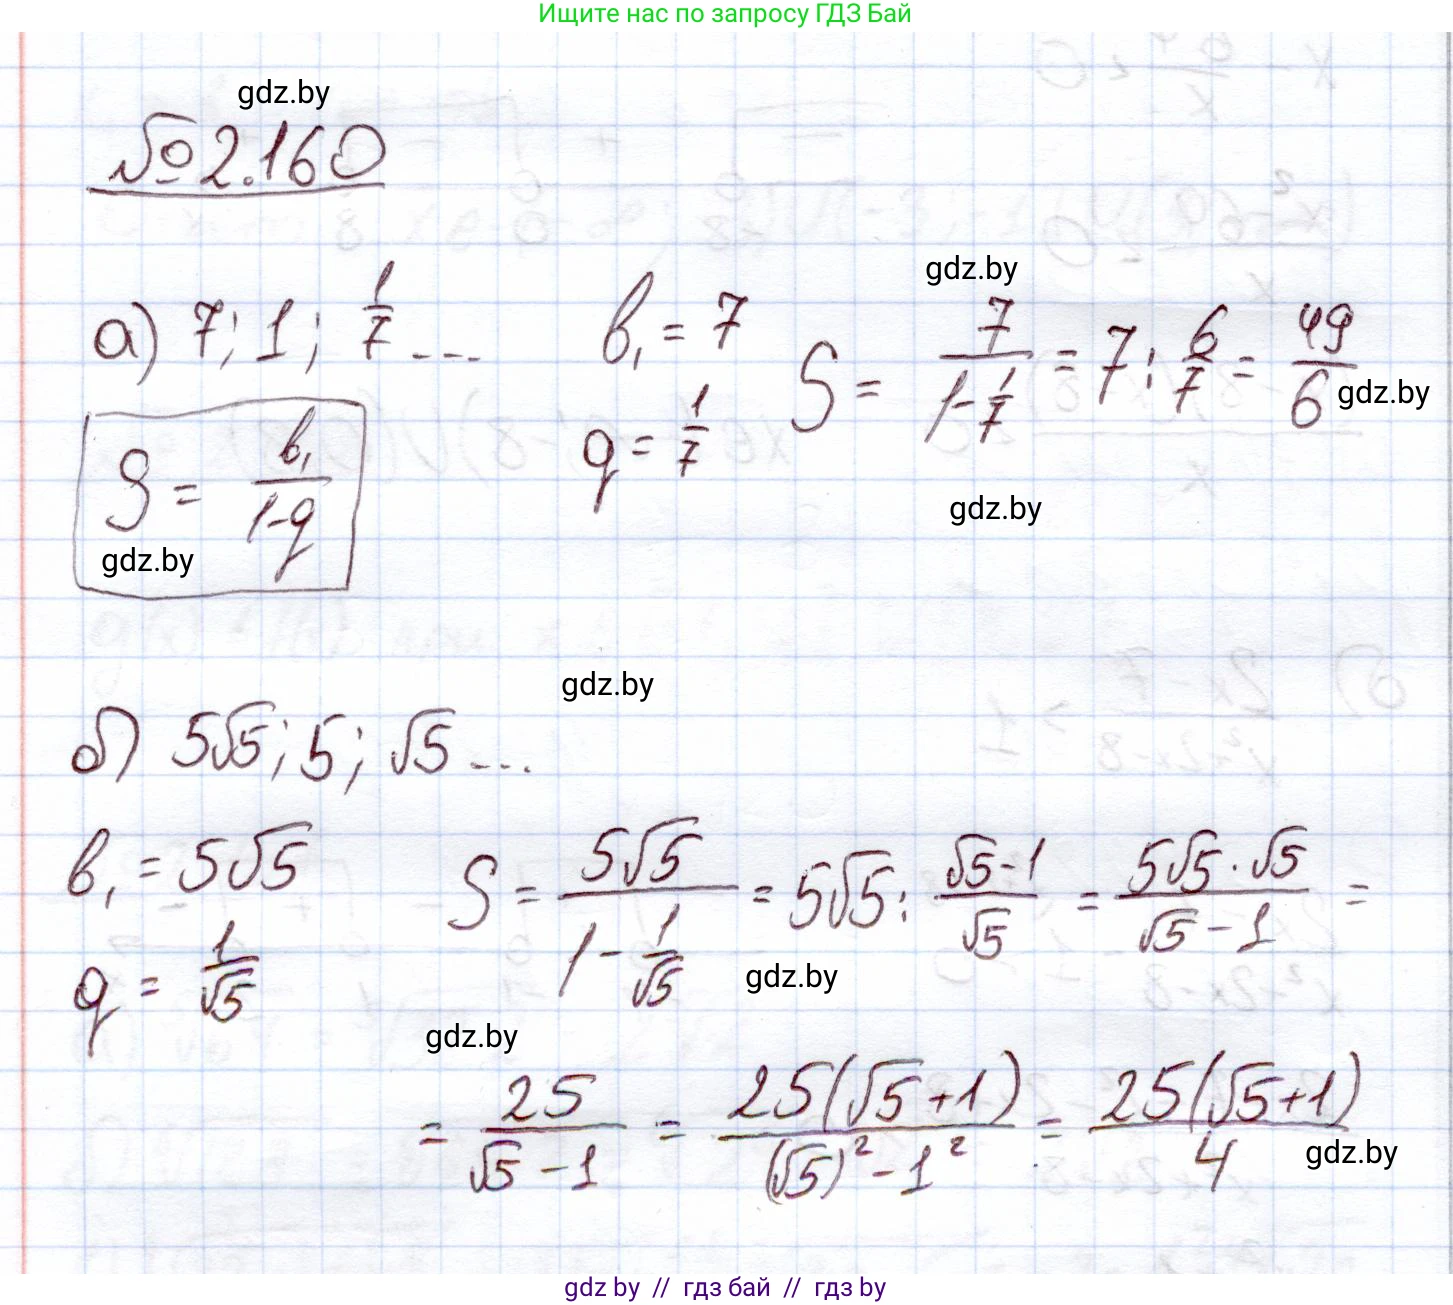 Ищите нас по запросу ГДЗ Бай
gdz.by
№2.160
gdz.by
а) 7; 1; 1/7 ... b₁ = 7 S = 7/(1-1/7) = 7 : 6/7 = 49/6
gdz.by
S = b₁/(1-q) q = 1/7
gdz.by
gdz.by
gdz.by
б) 5√5; 5; √5 ...
b₁ = 5√5 S = 5√5/(1 - 1/√5) = 5√5 : (√5-1)/√5 = (5√5 · √5)/(√5 - 1) =
q = 1/√5
gdz.by
gdz.by
= 25/(√5 - 1) = 25(√5+1)/((√5)² - 1²) = 25(√5+1)/4
gdz.by
gdz by // гдз бай // гдз by